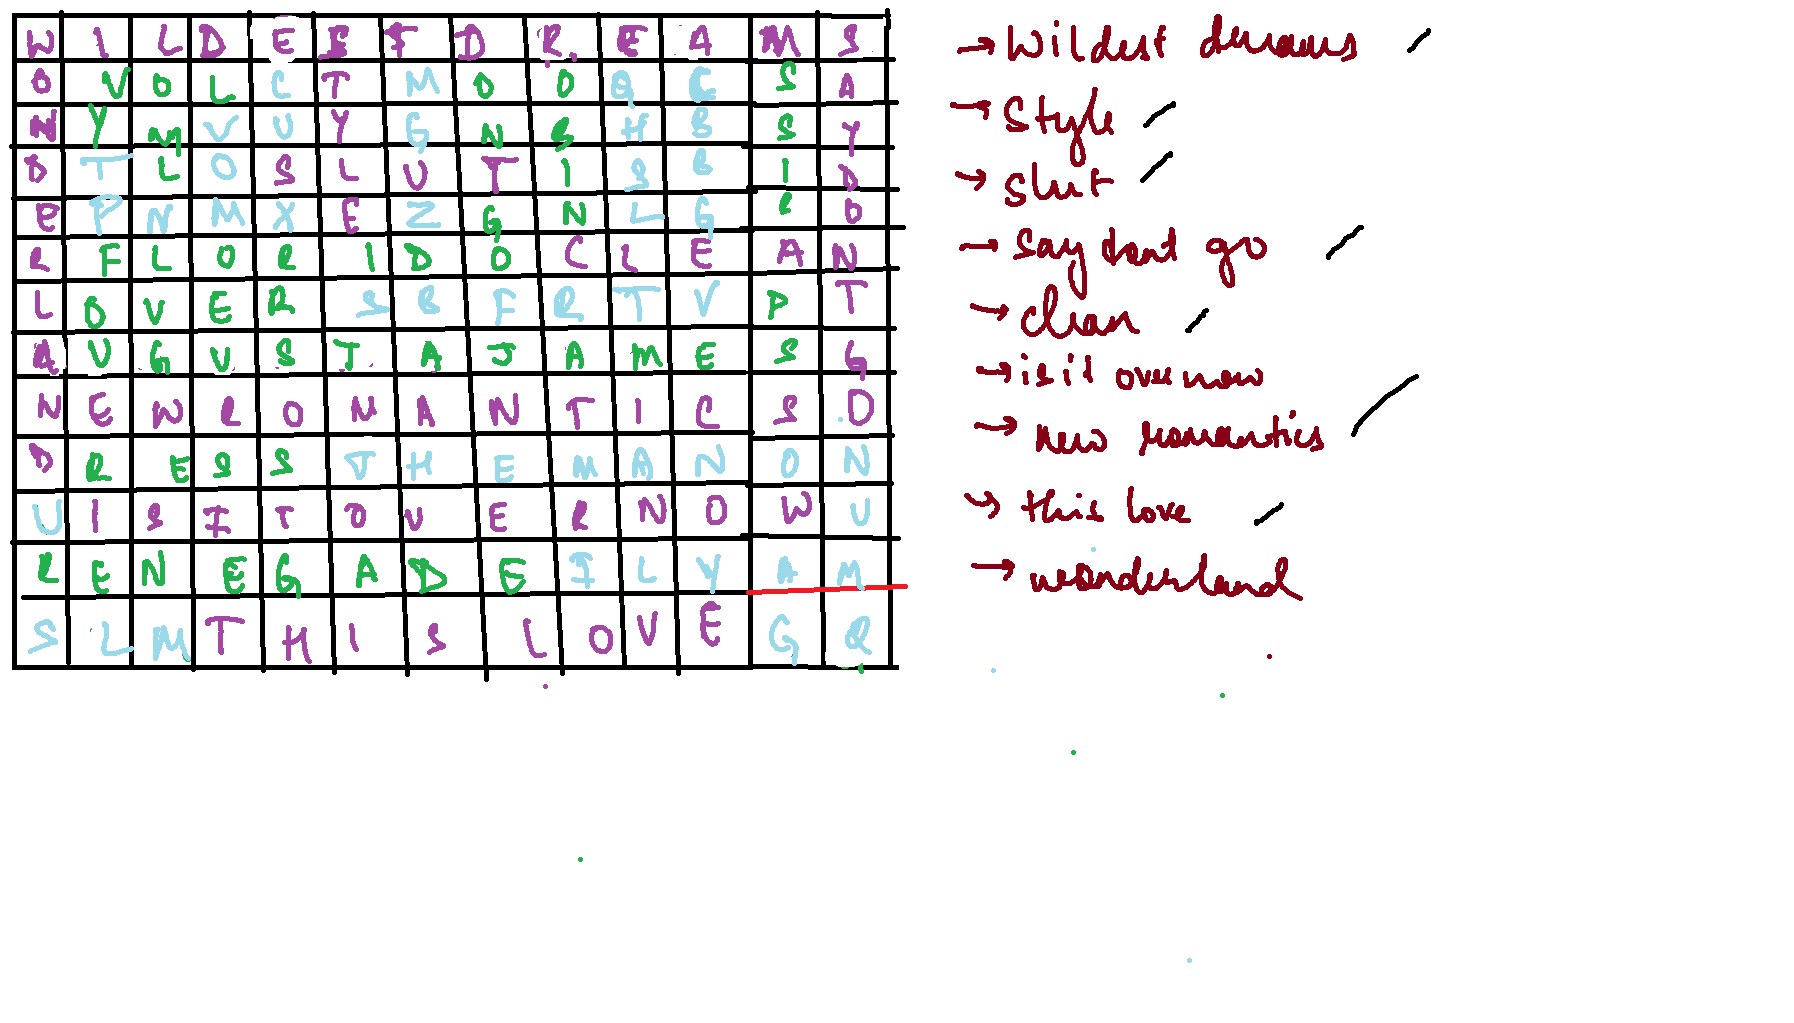 W I L D E S T D R E A M S
O V O L C T M O O Q C S A
N Y M V U Y G N B H B S Y
D T L O S L U T I S B I D
E P N M X E Z G N L G R O
R F L O R I D O C L E A N
L O V E R S B F R T V P T
A U G U S T A J A M E S G
N E W R O M A N T I C S O
D R E S S T H E M A N O N
U I S I T O V E R N O W U
R E N E G A D E I L Y A M
S L M T H I S L O V E G Q
→ Wildest dreams
→ Style
→ Slut
→ Say dont go
→ clean
→ is it over now
→ new romantics
→ this love
→ wonderland